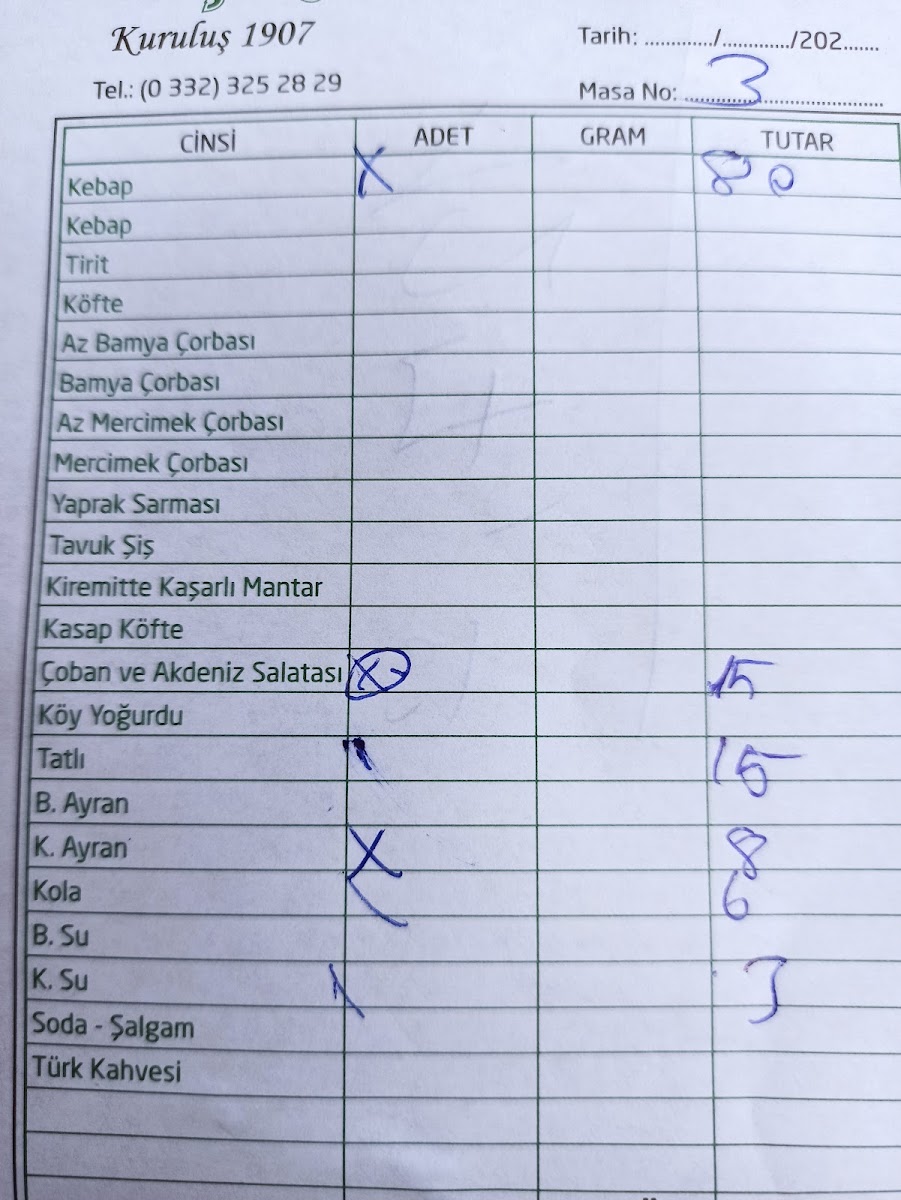 Kuruluş 1907
Tarih: ............/............/202.......
Tel.: (0 332) 325 28 29
Masa No: 3
CİNSİ ADET GRAM TUTAR
Kebap X 80
Kebap
Tirit
Köfte
Az Bamya Çorbası
Bamya Çorbası
Az Mercimek Çorbası
Mercimek Çorbası
Yaprak Sarması
Tavuk Şiş
Kiremitte Kaşarlı Mantar
Kasap Köfte
Çoban ve Akdeniz Salatası X 15
Köy Yoğurdu
Tatlı 15
B. Ayran
K. Ayran X 8
Kola 6
B. Su
K. Su 3
Soda - Şalgam
Türk Kahvesi